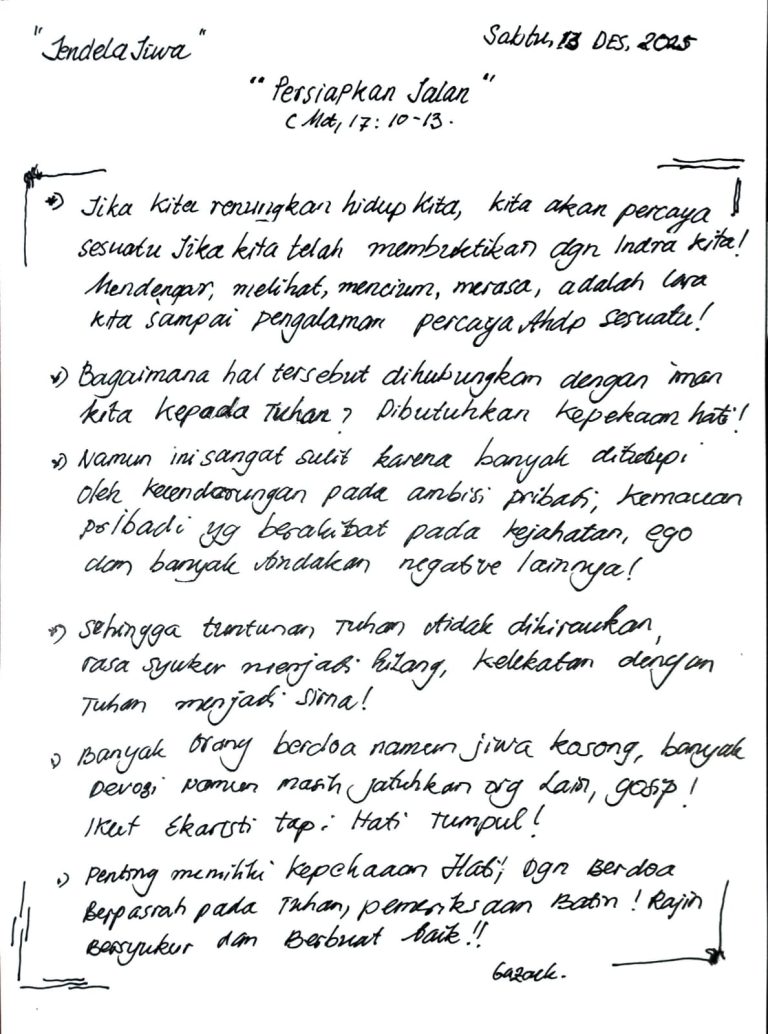 "Jendela Jiwa"
Sabtu, 13 DES, 2025
"Persiapkan Jalan"
( Mat, 17: 10-13.
*) Jika kita renungkan hidup kita, kita akan percaya
sesuatu Jika kita telah membuktikan dgn Indra kita!
Mendengar, melihat, mencium, merasa, adalah cara
kita sampai pengalaman percaya thdp sesuatu!
*) Bagaimana hal tersebut dihubungkan dengan iman
kita kepada Tuhan? Dibutuhkan kepekaan hati!
*) Namun ini sangat sulit karena banyak ditutupi
oleh kecendarungan pada ambisi pribadi, kemauan
pribadi yg berakibat pada kejahatan, ego
dan banyak tindakan negative lainnya!
*) Sehingga tuntunan Tuhan tidak dihiraukan,
rasa syukur menjadi hilang, kelekatan dengan
Tuhan menjadi sirna!
.) Banyak orang berdoa namun jiwa kosong, banyak
Devosi Namun masih jatuhkan org Lain, gosip!
Ikut Ekaristi tapi Hati Tumpul!
.) Penting memiliki Kepekaaan Hati, Dgn Berdoa
Berpasrah pada Tuhan, pemeriksaan Batin! Rajin
Bersyukur dan Berbuat baik!!